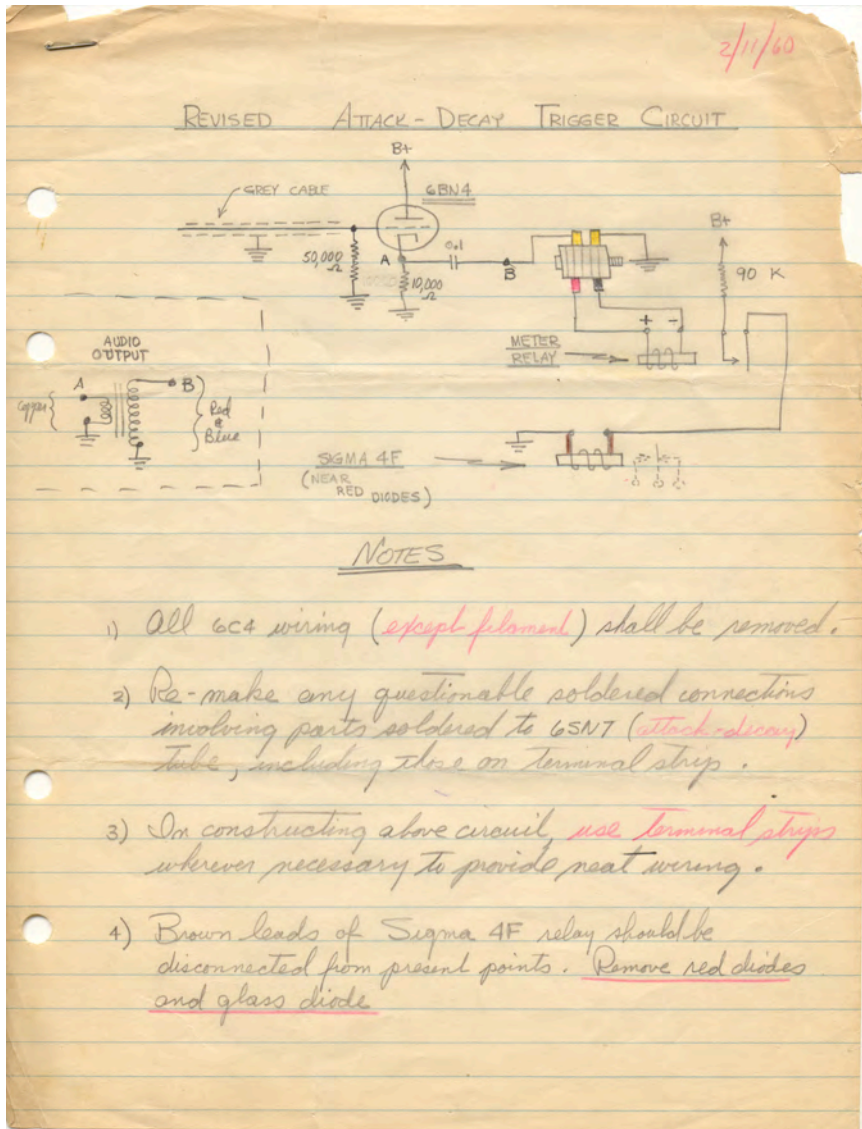 2/11/60
REVISED ATTACK-DECAY TRIGGER CIRCUIT
B+
6BN4
GREY CABLE
50,000
Ω
A
10,000
Ω
0.1
B
B+
90 K
+ -
METER
RELAY
AUDIO
OUTPUT
A
B
Copper
Red
&
Blue
SIGMA 4F
(NEAR
RED DIODES)
NOTES
1) All 6C4 wiring (except filament) shall be removed.
2) Re-make any questionable soldered connections
involving parts soldered to 6SN7 (attack-decay)
tube, including those on terminal strip.
3) In constructing above circuit, use terminal strips
wherever necessary to provide neat wiring.
4) Brown leads of Sigma 4F relay should be
disconnected from present points. Remove red diodes
and glass diode